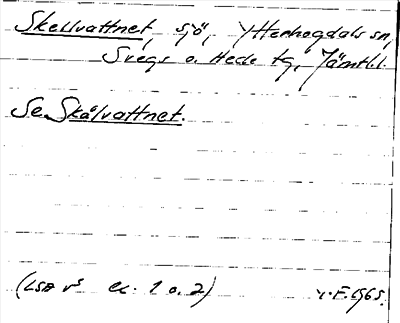 Skellvattnet, sjö, Ytterhogdals sn,
Svegs o. Hede tg, Jämtl.l.
Se Skålvattnet.
(LSA vs ex. 1 o. 2) . F. 1965.